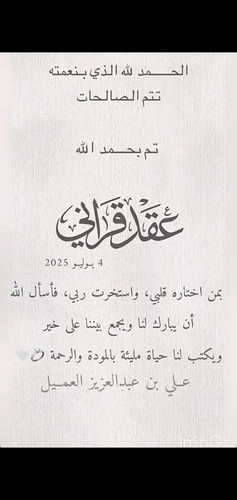 الحـــمد لله الذي بنعمته
تتم الصالحات
تم بحـمد الله
عقد قراني
4 يـولـيـو 2025
بمن اختاره قلبي، واستخرت ربي، فأسأل الله
أن يبارك لنا ويجمع بيننا على خير
ويكتب لنا حياة مليئة بالمودة والرحمة 💍🤍
عـلـي بن عبدالعزيز العميـل
InShOt